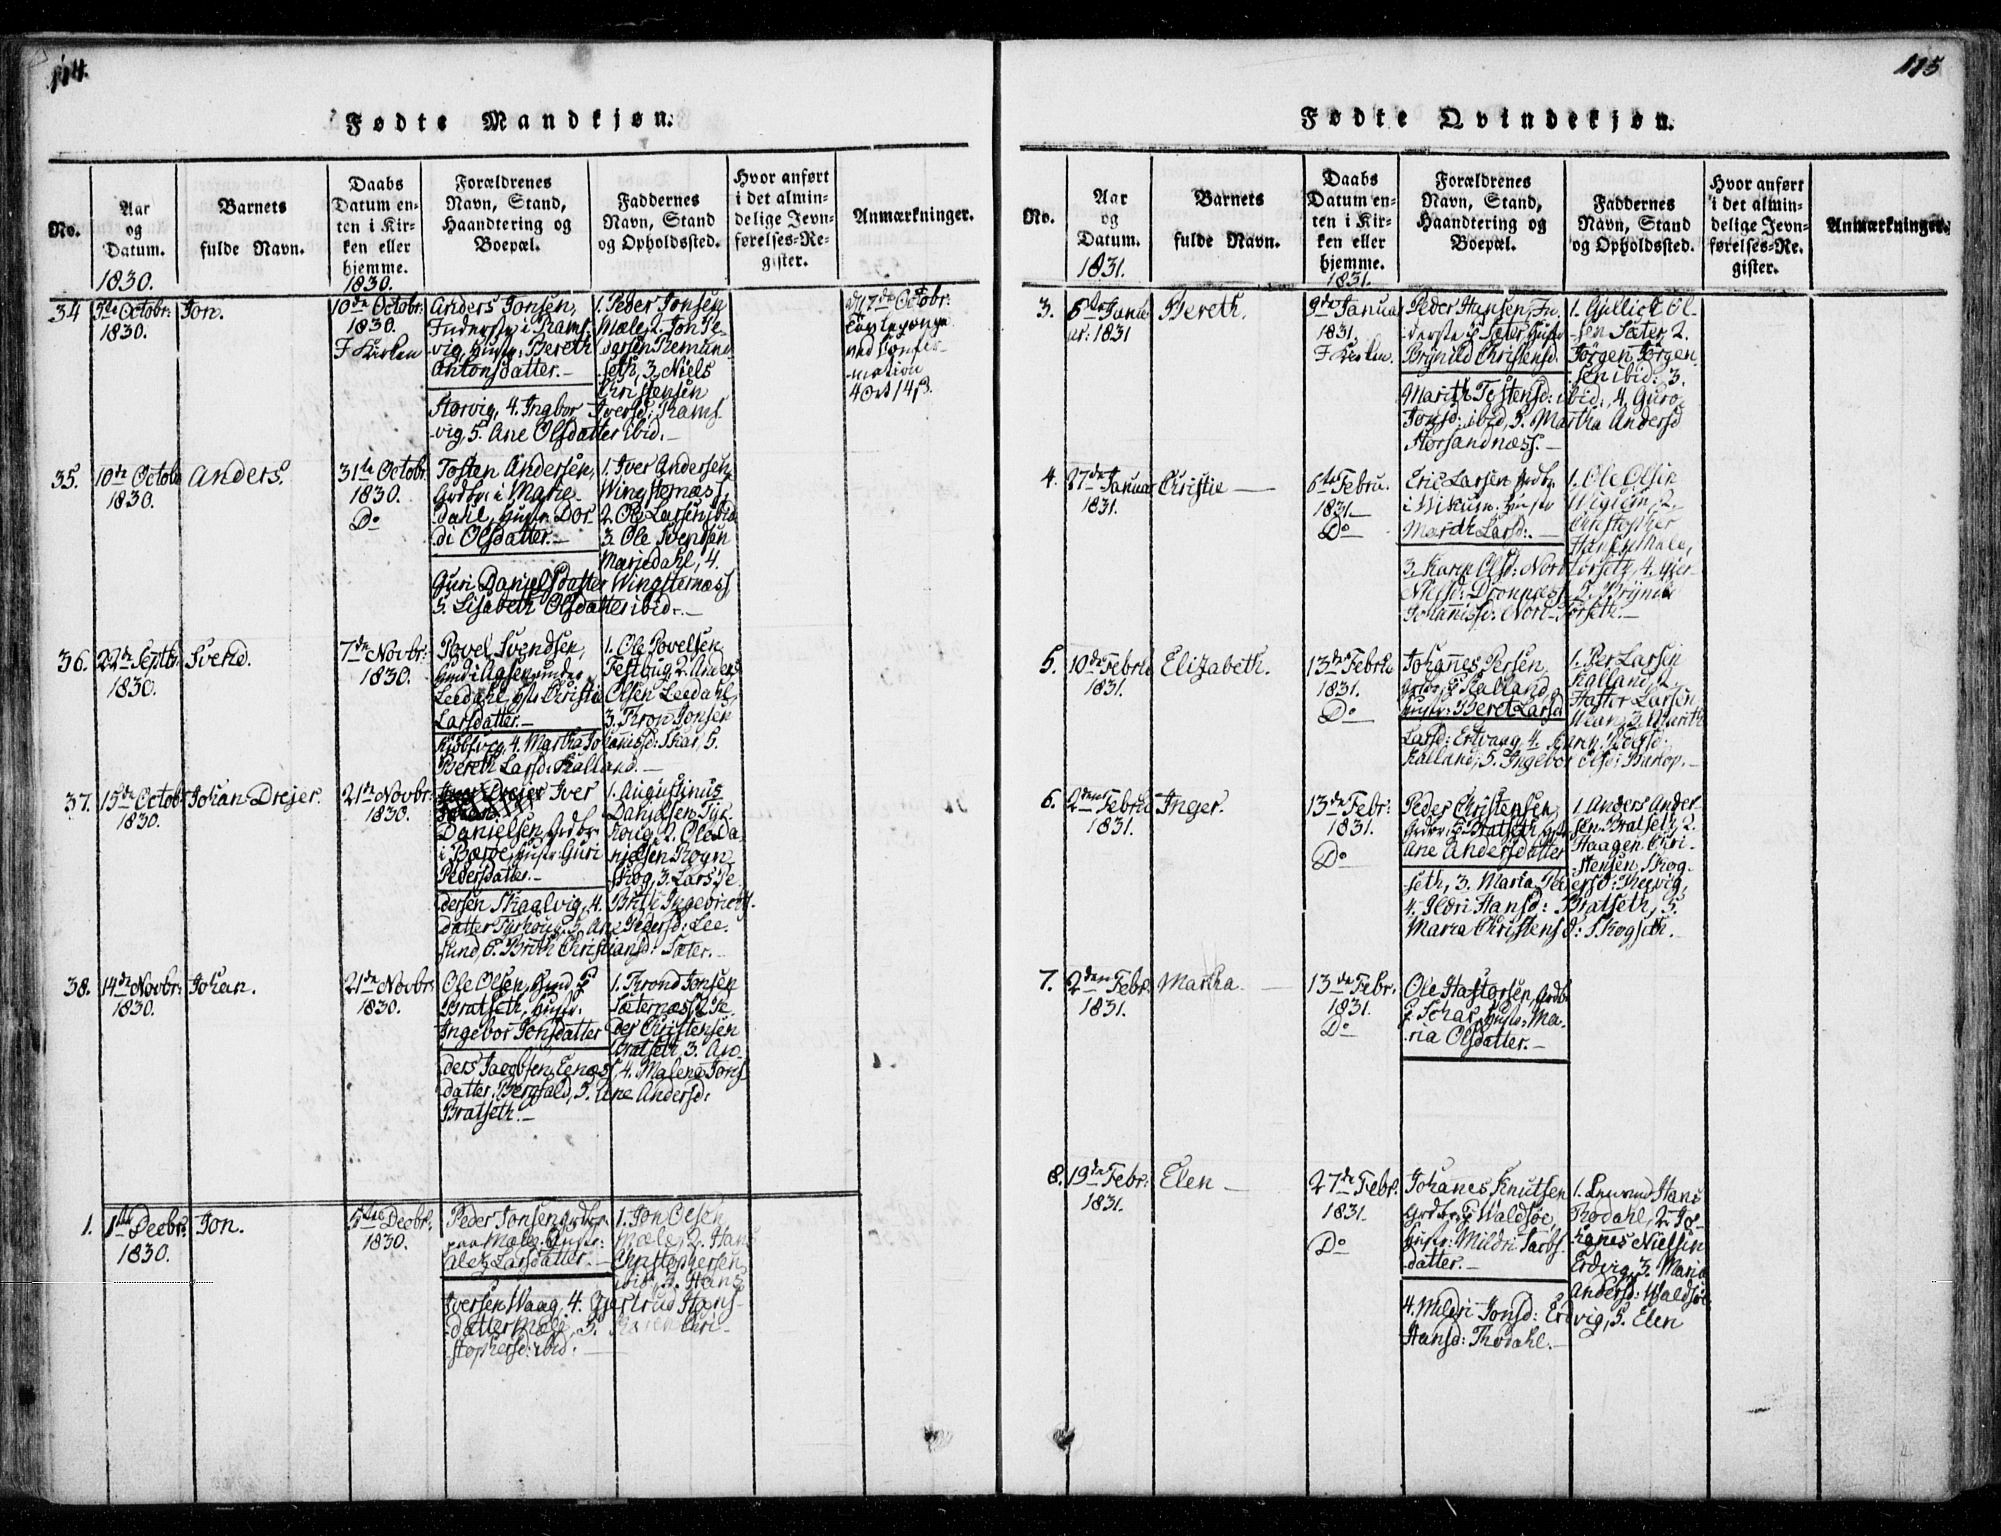 114.
Fødte Mandkjøn.
No.
Aar
og
Datum.
1830.
Barnets
fulde Navn.
Daabs
Datum en-
ten i Kir-
ken eller
hjemme.
1830.
Forældrenes
Navn, Stand,
Haandtering og
Boepæl.
Faddernes
Navn, Stand
og Opholdssted.
Hvor anført
i det almin-
delige Jevn-
førelses-Re-
gister.
Anmærkninger.
34
5te Octobr:
1830.
Jon.
10de Octobr:
1830.
I Kirken
Anders Jonsen,
Inderste i Rams-
vig, Hustr: Bereth
Antonsdatter.-
1. Peder Jonsen
Mæle, 2. Jon Pe-
dersen Remund-
seth, 3. Niels
Christensen
Størvig, 4. Ingbor Iversd: Rams
vig, 5. Ane Olsdatter ibid.-
d 17de Octobr:
mation
35.
10de Octobr
1830.
Anders.
31te Octobr.
1830.
Do
Tosten Andersen,
Grdbr. i Marie-
dahl, Hustr. Dor-
di Olsdatter.-
1. Iver Andersen
Wingsternæss,
2. Ole Larsen ibid
3. Ole Svendsen
Mariedahl, 4.
Guri Danielsdatter Wingsternæss
5. Lisabeth Olsdatter ibid.-
36.
22de Septbr:
1830.
Svend.
7de Novbr:
1830.
Povel Svendsen,
Leedahl, Hstr Christie
Larsdatter.-
1. Ole Povelsen
Festvig, 2. Anders
Olsen Leedahl,
3. Tron Jonsen
4. Martha Johannisd: Skar, 5.
Bereth Larsd: Kalland.-
37.
15de Octobr
1830.
Johan Drejer.
21de Novbr:
1830.
Iver
Danielsen, Grdbr.
i Bæröe, Hustr: Guri
Pedersdatter.-
1. Augustinus
Danielsen Tyr-
houg, 2. Ole Da-
nielsen Rogn-
skog, 3. Lars Pe-
dersen Skaalvig, 4. Brit Ingebrigts-
datter Tyrhoug, 5. Ane Pedersd: Lee-
sund, 6. Brith Christiansd: Sæter.-
38.
14de Novbr:
1830.
Johan.
21de Novbr:
1830.
Ole Olsen, Hmd. p
Bratseth, Hustr.
Ingebor Jonsdatter
1. Trond Jonsen
Sæternæss, 2. Pe-
der Christensen
Bratseth, 3. An-
ders Jacobsen Eenæs, 4. Malena Jons-
datter Bergfald, 5. Ane Andersd:
Bratseth.-
1.
1ste Decbr.
1830.
Jon.
5te Decbr.
1830.
Peder Jonsen Grdbr.
paa Mæle, Hustr:
Alet Larsdatter.-
1. Jon Olsen
Mæle, 2. Hans
Christophersen
ibid, 3. Hans
Iversen Waag, 4. Gjertrud Hans-
datter Mæle, 5. Karen Chri-
stophersd: ibid.-
115
Fødte Qvindekjøn.
No.
Aar
og
Datum.
1831.
Barnets
fulde Navn.
Daabs
Datum en-
ten i Kir-
ken eller
hjemme.
1831.
Forældrenes
Navn, Stand,
Haandtering og
Boepæl.
Faddernes
Navn, Stand
og Opholdssted.
Hvor anført
i det almin-
delige Jevn-
førelses-Re-
gister.
Anmærkninger.
3.
6te Janu-
ar: 1831
Bereth.
9de Januar
1831.
I Kirken.
Peder Hansen, In-
derste p Sæter, Hustr
Brynild Christensd:
1. Gullick Ol-
sen Sæter 2.
Jörgen Jörgen-
sen ibid: 3.
Marith Tostensd: ibid:, 4. Guro
Jonsd: ibid, 5. Martha Andersd
Storsandnæss.-
4.
27de Januar
1831.
Christie
6te Febru.
1831.
Do
Eric Larsen Grdbr.
i Wikum, Hustr
Mardh Larsd:.-
1. Ole Olsen
2.
Christopher
Hansen Mæle,
3. Karen Olsd: Nord-Torseth, 4.
Nielsd: 5. Brynild
Johannisd: Nord-Torseth.-
5.
10de Februa
1831.
Elizabeth.
13de Februa
1831.
Do
Johannes Persen,
Grdbr. p Kalland,
Hustr: Beret Larsd
1. Per Larsen
Kalland, 2.
Haftor Larsen
Wean, 3. Marith
Larsd: Ertvaag, 4. Karen Pedersd:
Kalland, 5. Ingebor Olsd:
6.
2den Februa
1831.
Inger.
13de Febr:
1831.
Do
Peder Christensen,
Grdbr. p Bratseth,
Ane Andersdatter
1. Anders Ander-
sen Bratseth, 2.
Haagen Chri-
stensen Skog-
seth, 3. Maria Pedersd: Reevig,
4. Ildri Hansd: Bratseth, 5.
Maria Christensd: Skogseth.-
7.
2den Febr.
1831.
Martha.
13de Febr.
1831.
Do
Ole Haftorsen, Grdbr
p Schar, Hustr: Ma-
ria Olsdatter.-
8.
19de Febr:
1831.
Elen
27de Febr.
1831.
Do
Johanes Knutsen
Grdbr. p Waldsöe,
Hustr: Mildri Jacobs-
datter.-
1. Hans
Thodahl, 2. Jo-
hanes Nielsen
Erdvig, 3. Maria
Andersd: Waldsöe
4. Mildri Jonsd: Erdvig, 5. Elen
Hansd: Thodahl.-